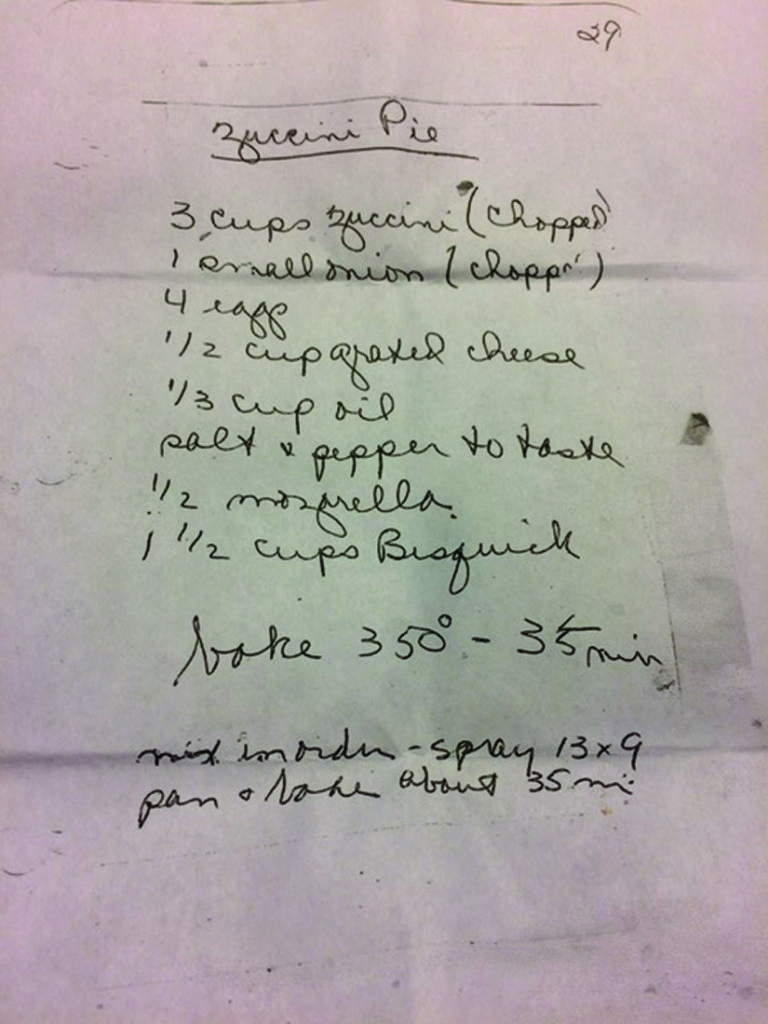 29
Zuccini Pie
3 cups zuccini (chopped)
1 small onion (chopp')
4 eggs
1/2 cup grated cheese
1/3 cup oil
salt & pepper to taste
1/2 mozarella.
1 1/2 cups Bisquick
bake 350° - 35 min
mix in order - spray 13 x 9
pan & bake about 35 mi